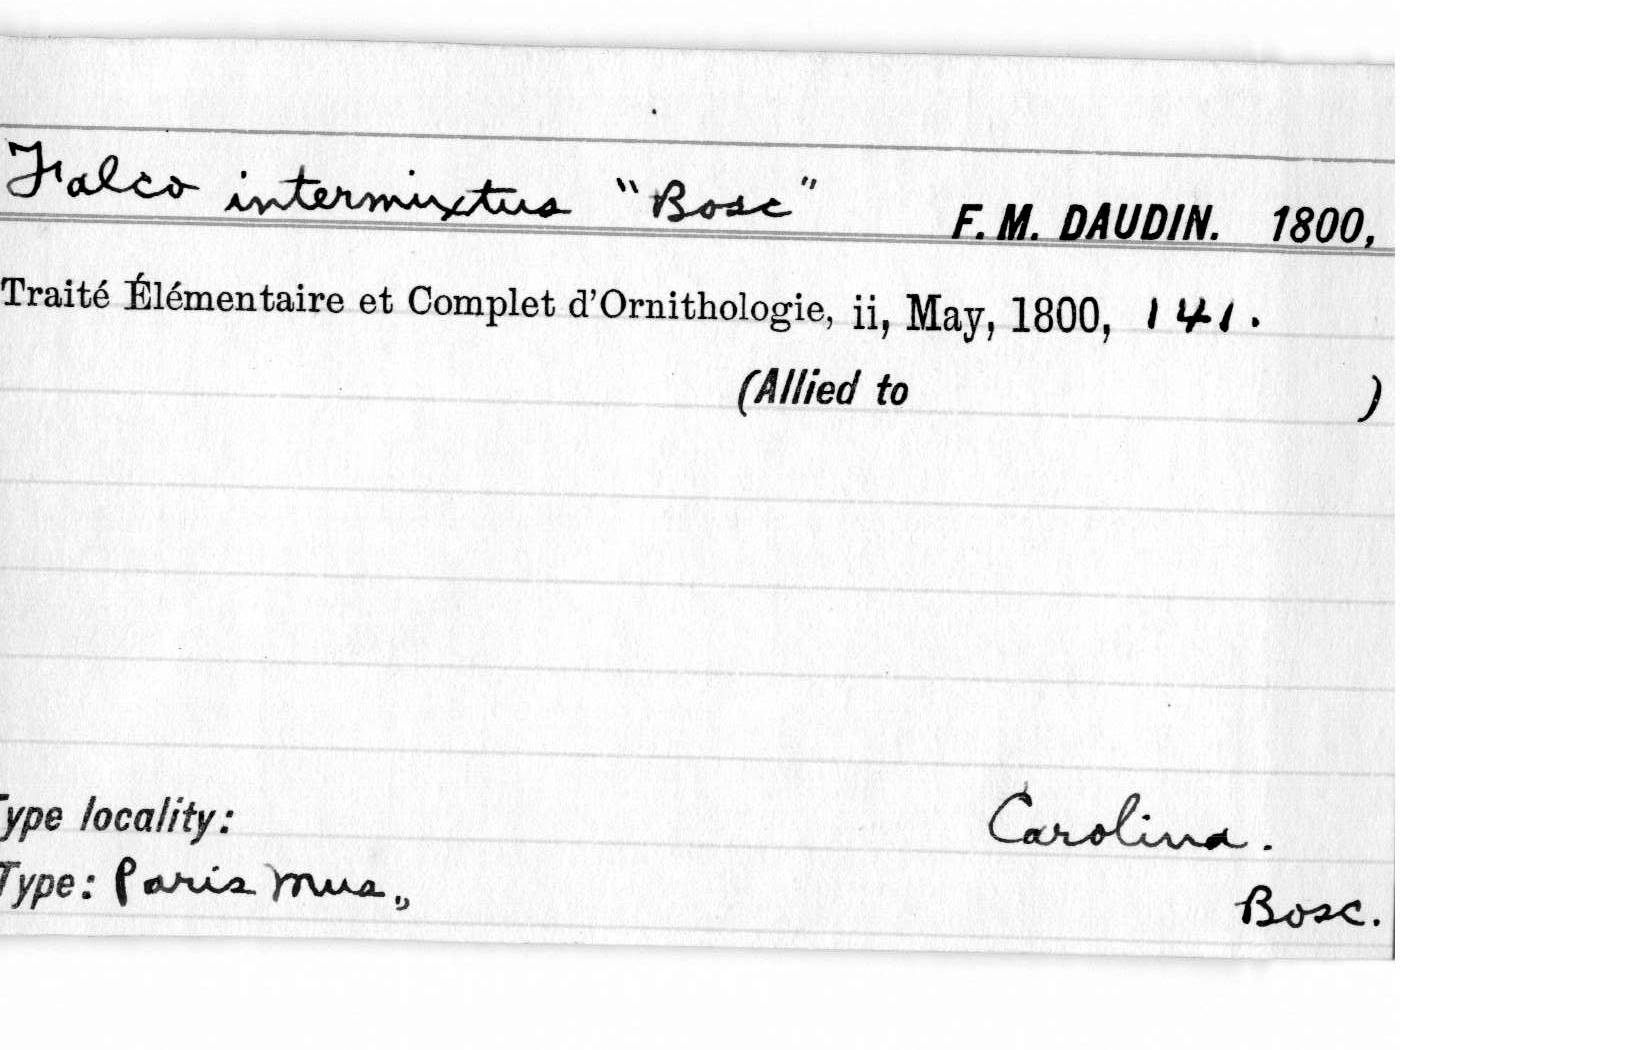 Falco intermixtus "Bosc" F. M. DAUDIN. 1800,
Traité Élémentaire et Complet d'Ornithologie, ii, May, 1800, 141.
(Allied to )
Type locality: Carolina.
Type: Paris Mus., Bosc.